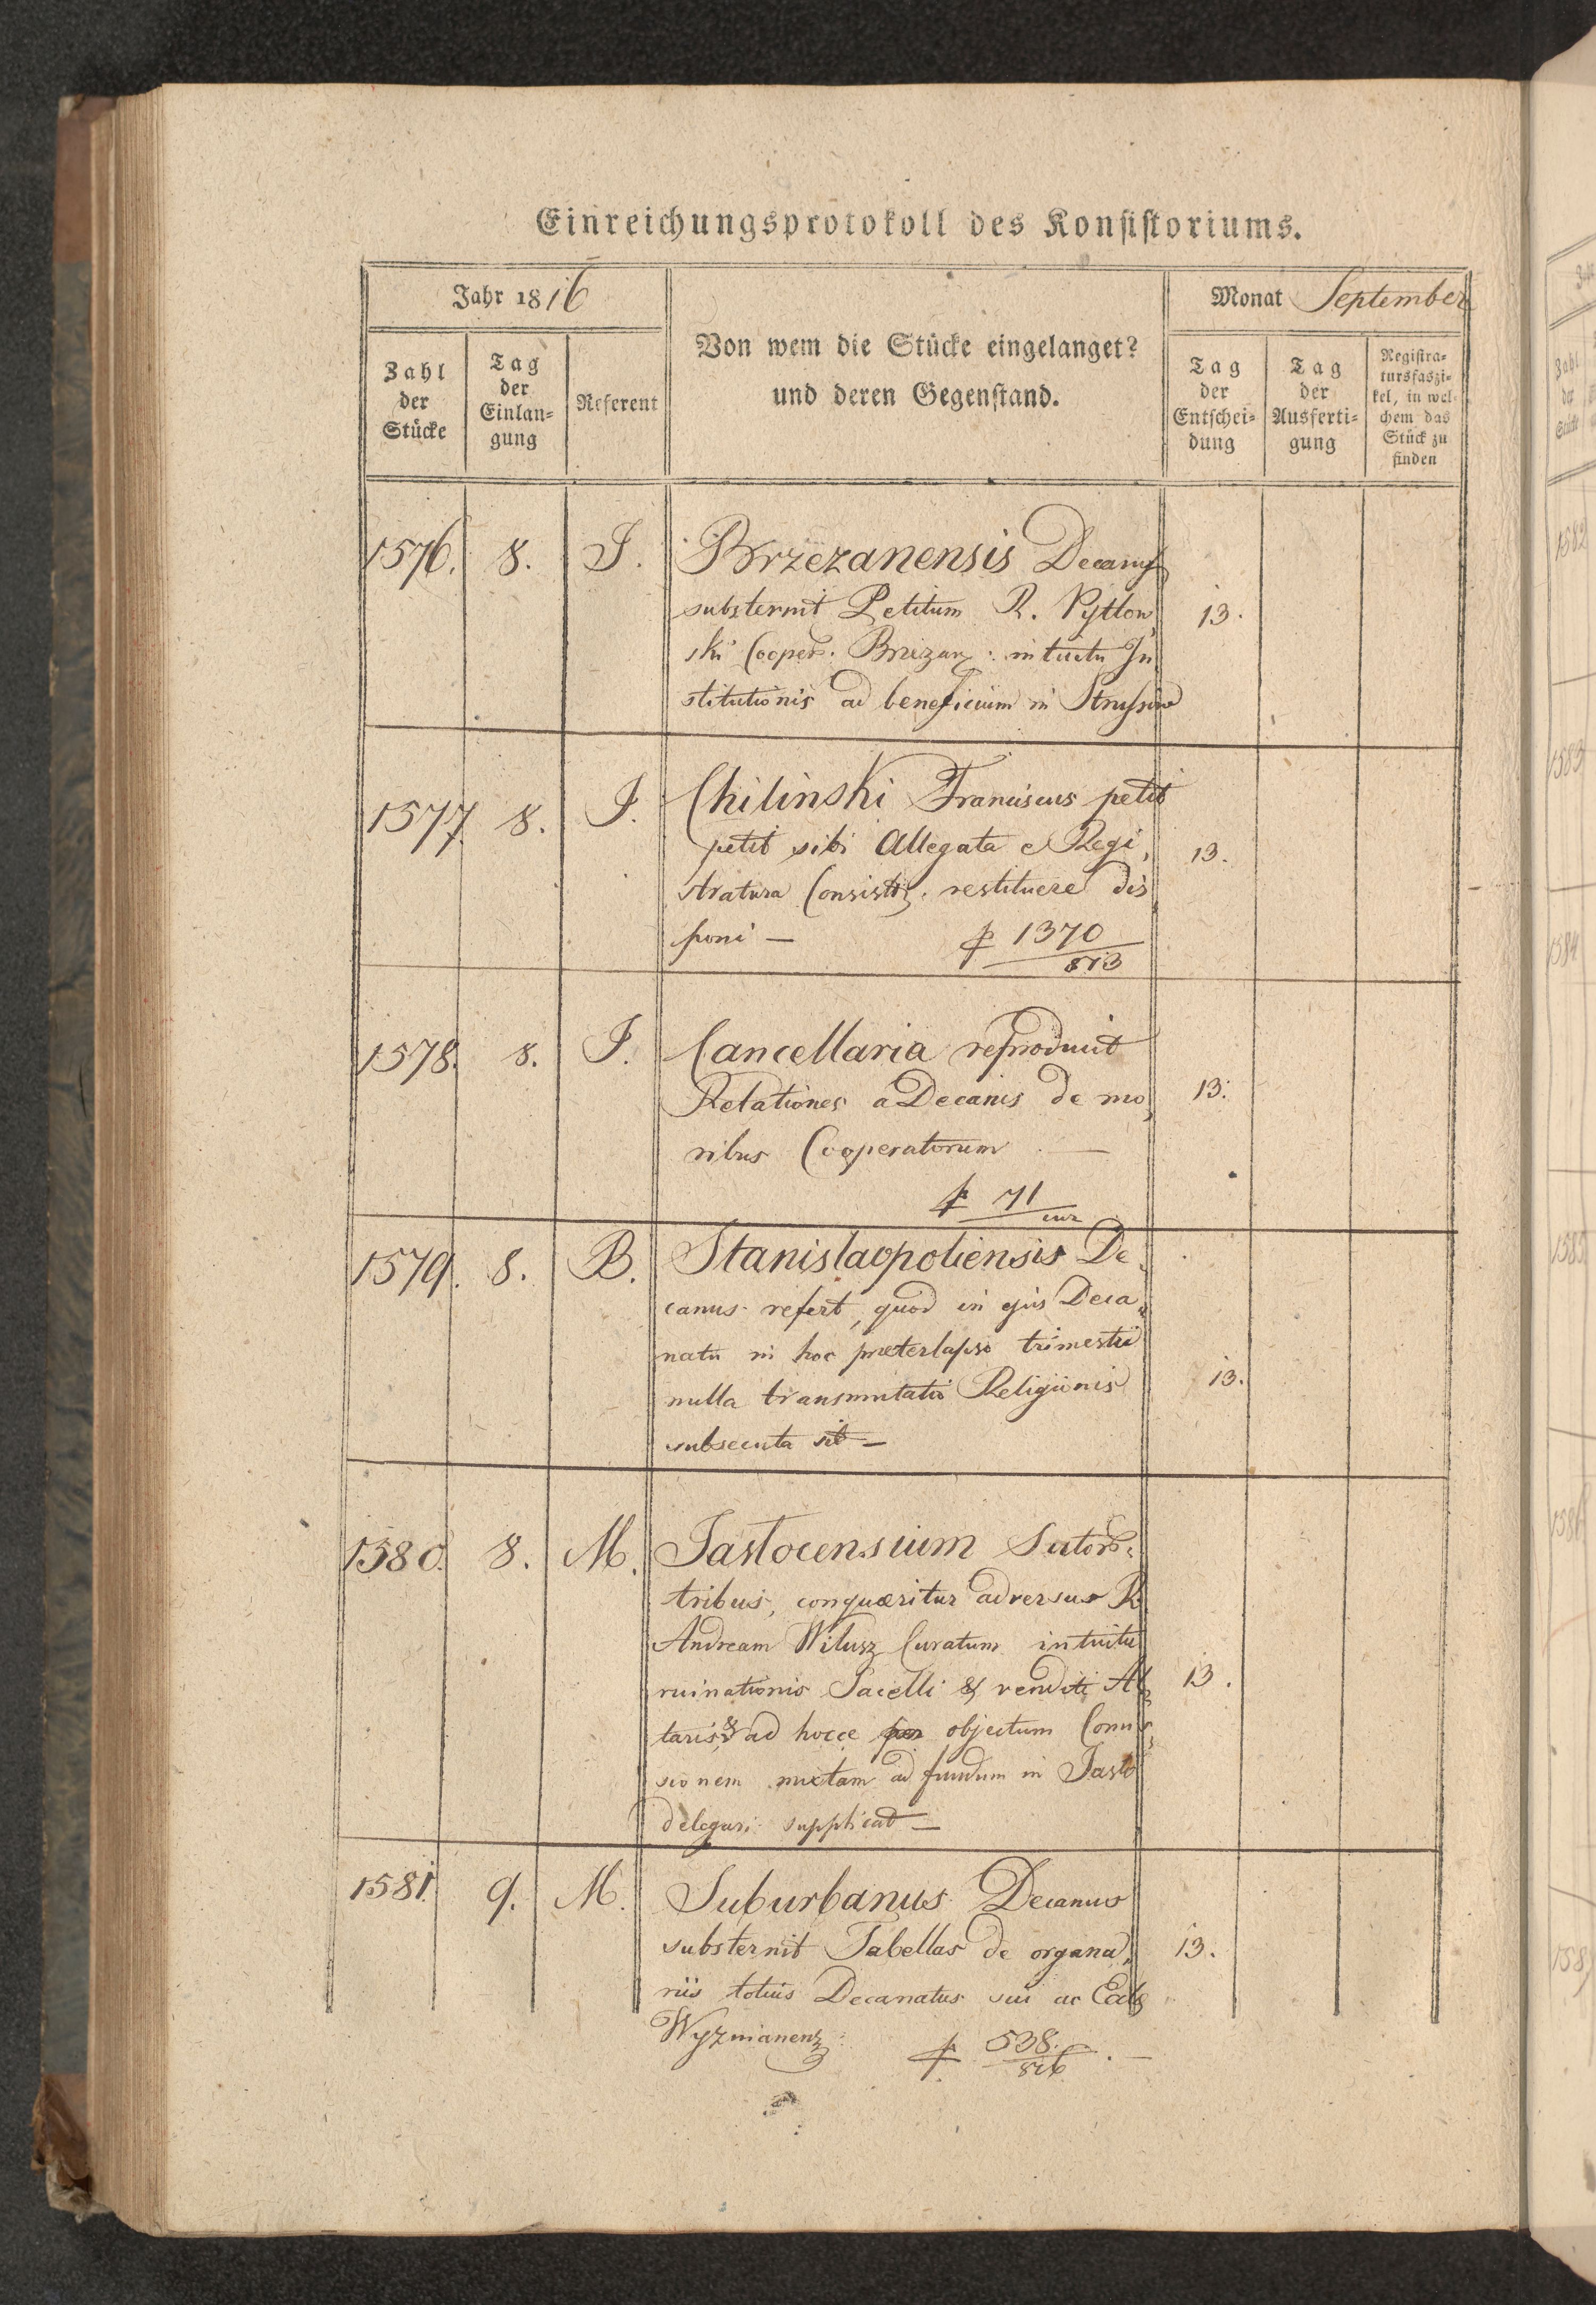 Einreichungsprotokoll des Konsistoriums.
Jahr 1816
Monat September
Zahl der Stücke
Tag der Einlan=gung
Referent
Von wem die Stücke eingelanget?
und deren Gegenstand.
Tag der Entschei=dung
Tag der Ausferti=gung
Registra=tursfaszi=kel, in wel=chem das Stück zu finden
1576. 8. J. Brzezanensis Decanus
substernit Petitum R. Pytlow,
ski Cooper. Brzezan: intuitu In
stitutionis ad beneficium in Strussow
13.
1577. 8. J. Chilinski Franciscus petit
petit sibi Allegata e Regi,
stratura Consist. restituere dis
poni —
℟ 1370
813
13.
1578. 8. J. Cancellaria reproducit
Relationes a Decanis de mo,
ribus Cooperatorum —
71
13.
1579. 8. B. Stanislaopoliensis De
canus refert, quod in ejus Deca,
natu in hoc præterlapso trimestri
nulla transmutatio Religionis
subsecuta sit —
13.
1580. 8. M. Jaslocensium Sutor:
tribus, conquæritur adversus R.
Andream Wilusz Curatum intuitu
ruinationis Sacelli & venditi Al
taris, & ad hocce objectum Comis,
sionem mixtam ad fundum in Jaslo
delegari supplicat —
13.
1581. 9. M. Suburbanus Decanus
substernit Tabellas de organa,
riis totius Decanatus sui ac
Wyznianens:
538.
816 . —
13.